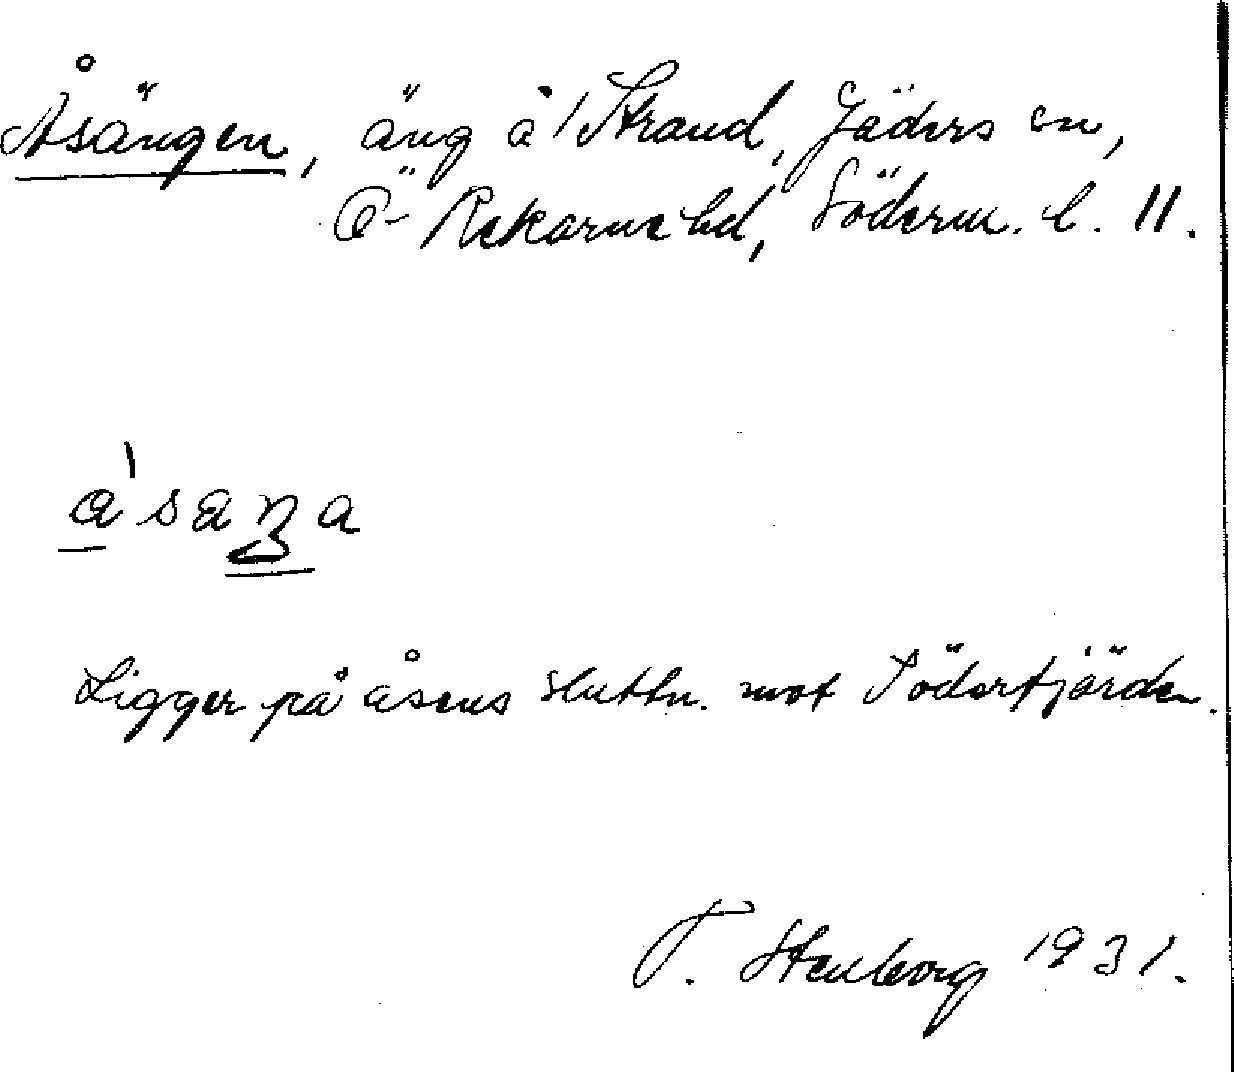 Åsängen, äng å Strand, Jäders sn,
Ö- Rekarne hd, Söderm. l. 11.
a'saŋa
Ligger på åsens sluttn. mot Söderfjärden.
T. Stenborg 1931.